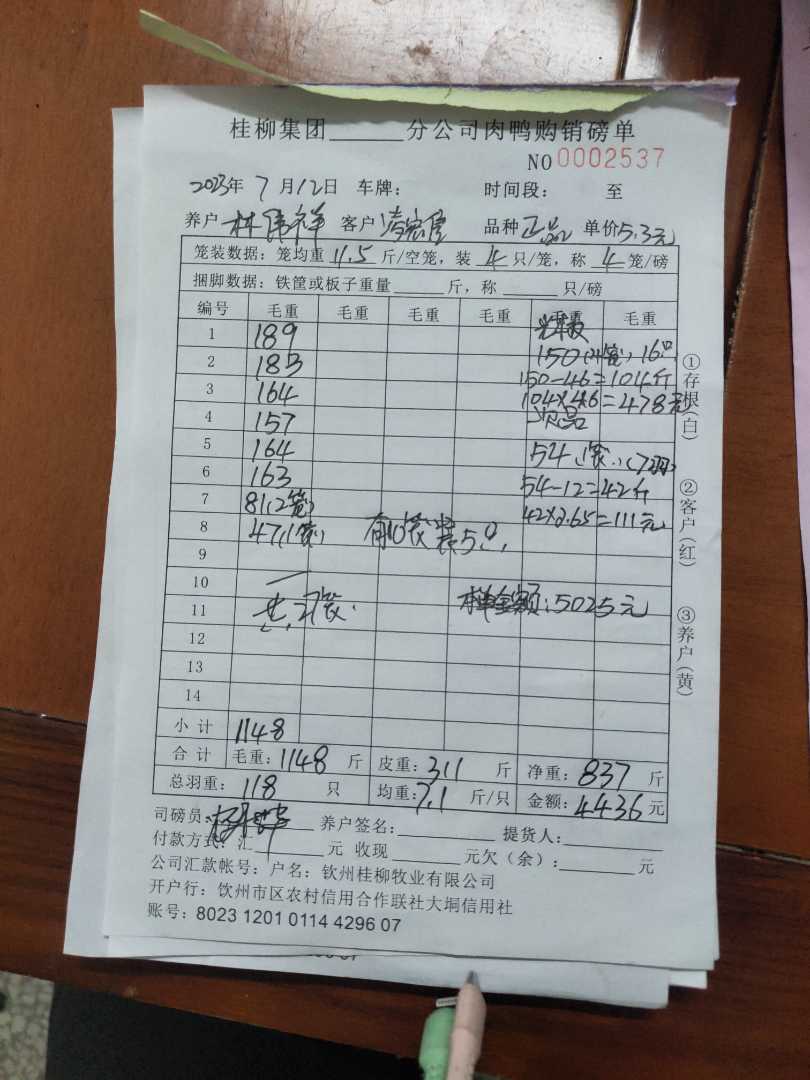 桂柳集团______分公司肉鸭购销磅单
NO 0002537
2023年 7 月12日 车牌： 时间段： 至
养户 林伟祥 客户 品种 正品 单价5.3元
笼装数据：笼均重 11.5 斤/空笼，装 4 只/笼，称 4 笼/磅
捆脚数据：铁筐或板子重量_____斤，称_____只/磅
编号 毛重 毛重 毛重 毛重 毛重 毛重
1 189
2 183 150(4笼) 16只
3 164 150-46=104斤
104×4.6=478元
4 157 次品
5 164 54 1笼 (7羽)
6 163 54-12=42斤
7 81(2笼) 42×2.65=111元
8 47(1笼) 有10笼装5只
9
10
11 共27笼 金额：5025元
12
13
14
小计 1148
合计 毛重：1148 斤 皮重：311 斤 净重：837 斤
总羽重：118 只 均重：7.1 斤/只 金额：4436元
司磅员： 养户签名： 提货人：
付款方式：汇_____元 收现_____元欠（余）：_____元
公司汇款帐号：户名：钦州桂柳牧业有限公司
开户行：饮州市区农村信用合作联社大垌信用社
账号：8023 1201 0114 4296 07
①存根(白)
②客户(红)
③养户(黄)